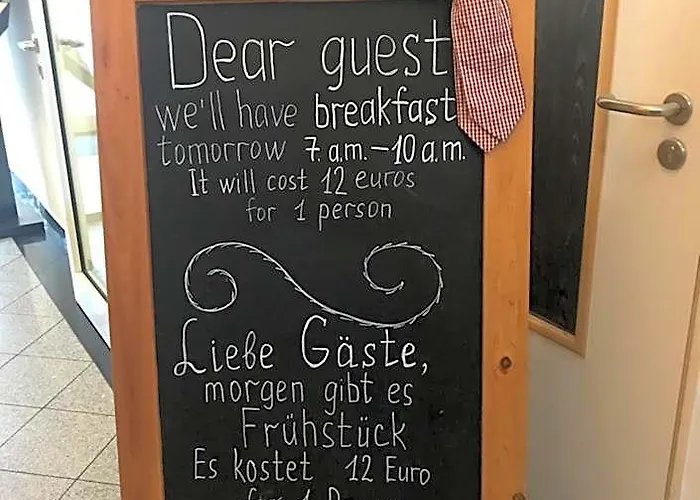 Dear guest
we'll have breakfast
tomorrow 7. a.m.–10 a.m.
It will cost 12 euros
for 1 person
Liebe Gäste,
morgen gibt es
Frühstück
Es kostet 12 Euro